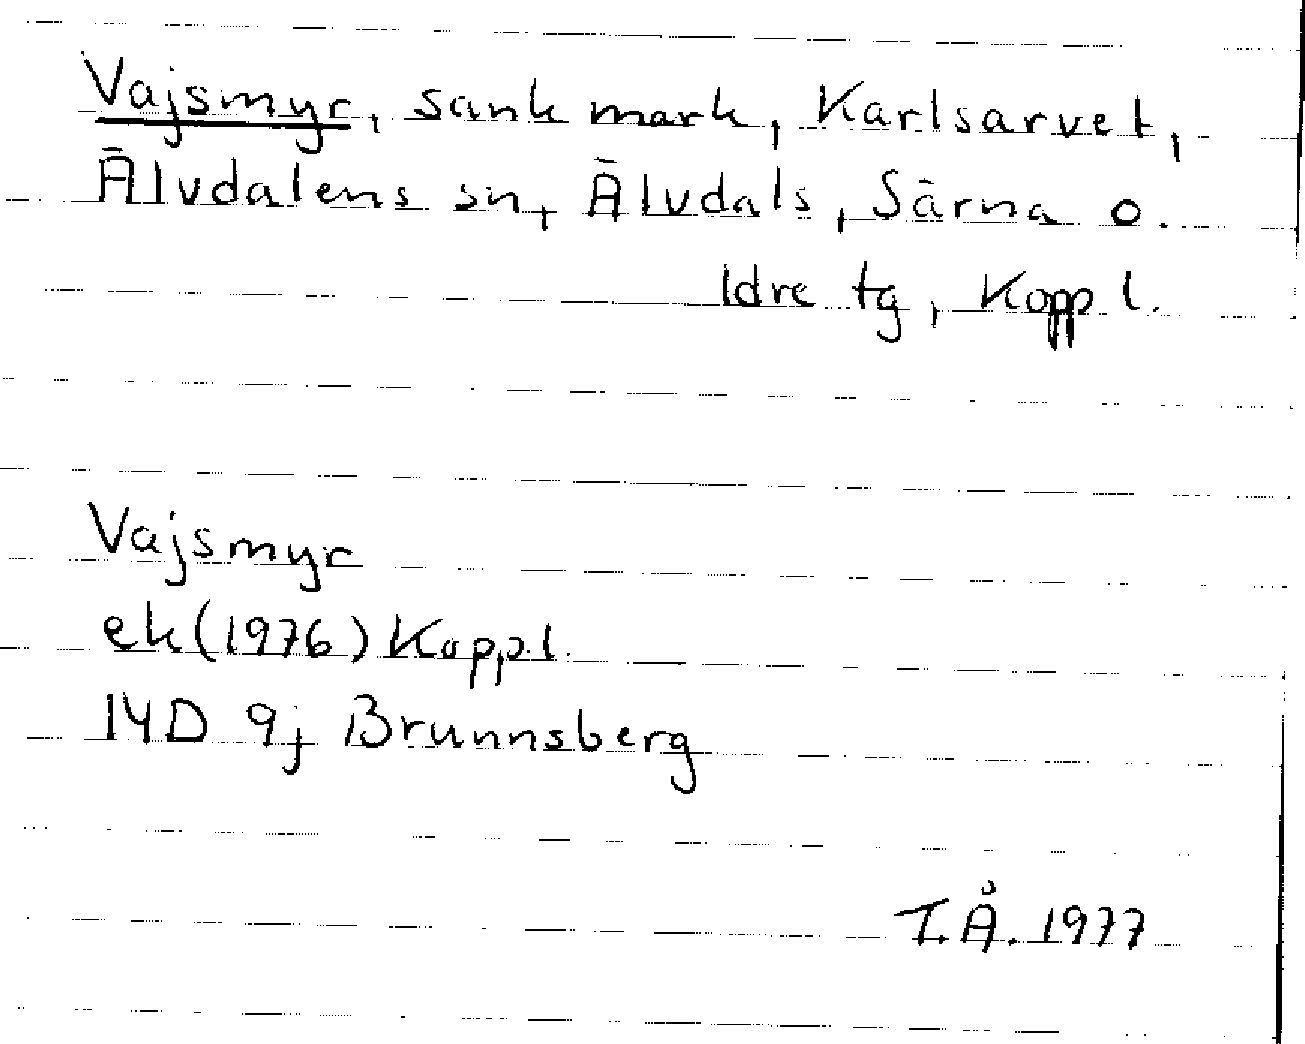 Vajsmyr, sank mark, Karlsarvet,
Älvdalens sn, Älvdals, Särna o.
Idre tg, Kopp l.
Vajsmyr
ek (1976) Kopp.l.
14D 9j Brunnsberg
T.Å. 1977